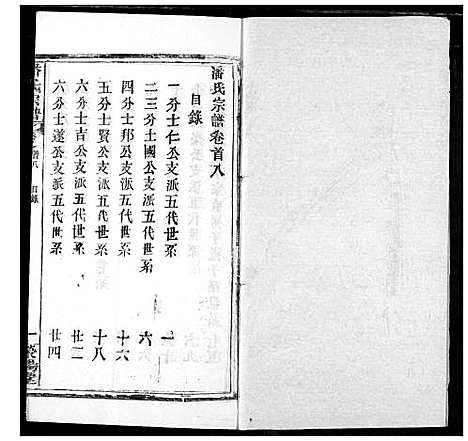 潘氏宗譜卷首八
目錄
一分士仁公支派五代世系 一
二三分士國公支派五代世系 六
四分士邦公支派五代世系 十六
五分士賢公支派五代世系 十八
六分士吉公支派五代世系 廿二
六分士遂公支派五代世系 廿四
目錄
一